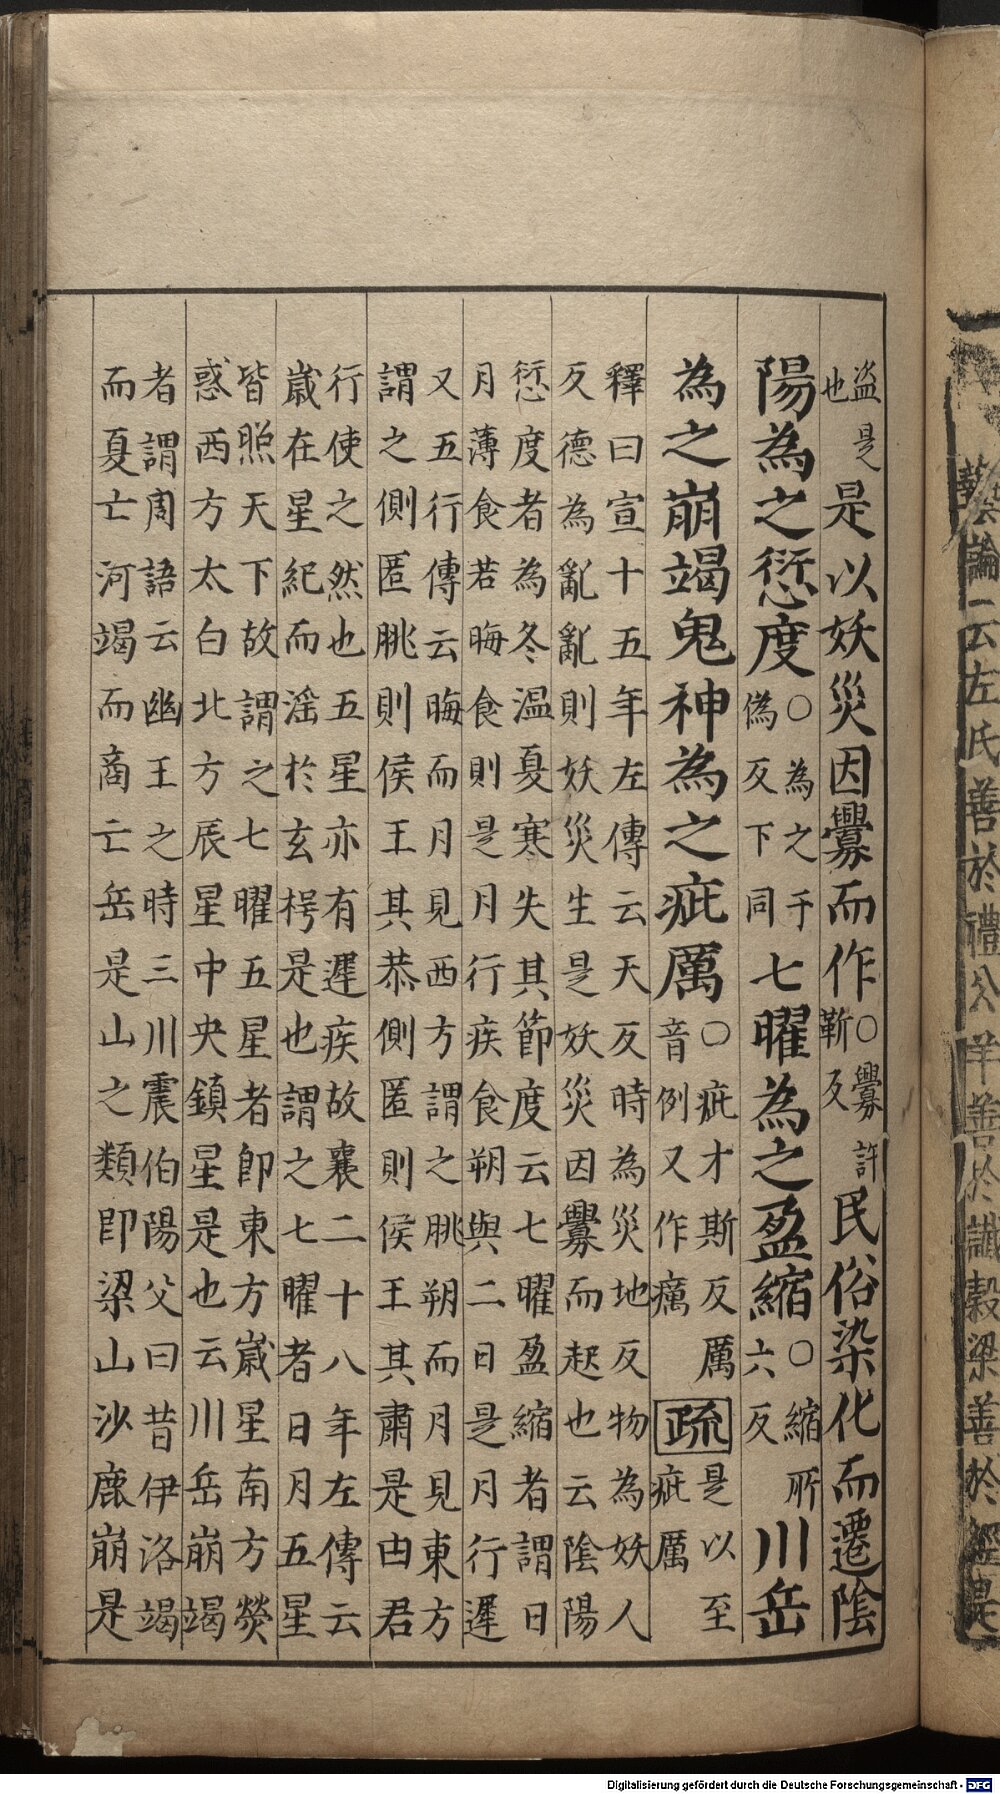 藝論云左氏善於禮公羊善於讖穀梁善於經是
盜是也是以妖災因釁而作○釁許靳反民俗染化而遷陰
陽為之愆度○為之于偽反下同七曜為之盈縮○縮所六反川岳
為之崩竭鬼神為之疵厲○疵才斯反厲音例又作癘疏是以至疵厲
釋曰宣十五年左傳云天反時為災地反物為妖人
反德為亂亂則妖災生是妖災因釁而起也云陰陽
愆度者為冬温夏寒失其節度云七曜盈縮者謂日
月薄食若晦食則是月行疾食朔與二日是月行遲
又五行傳云晦而月見西方謂之朓朔而月見東方
謂之側匿朓則侯王其恭側匿則侯王其肅是由君
行使之然也五星亦有遲疾故襄二十八年左傳云
歳在星紀而滛於玄枵是也謂之七曜者日月五星
皆照天下故謂之七曜五星者即東方歳星南方熒
惑西方太白北方辰星中央鎮星是也云川岳崩竭
者謂周語云幽王之時三川震伯陽父曰昔伊洛竭
而夏亡河竭而商亡岳是山之類即梁山沙鹿崩是
Digitalisierung gefördert durch die Deutsche Forschungsgemeinschaft - DFG